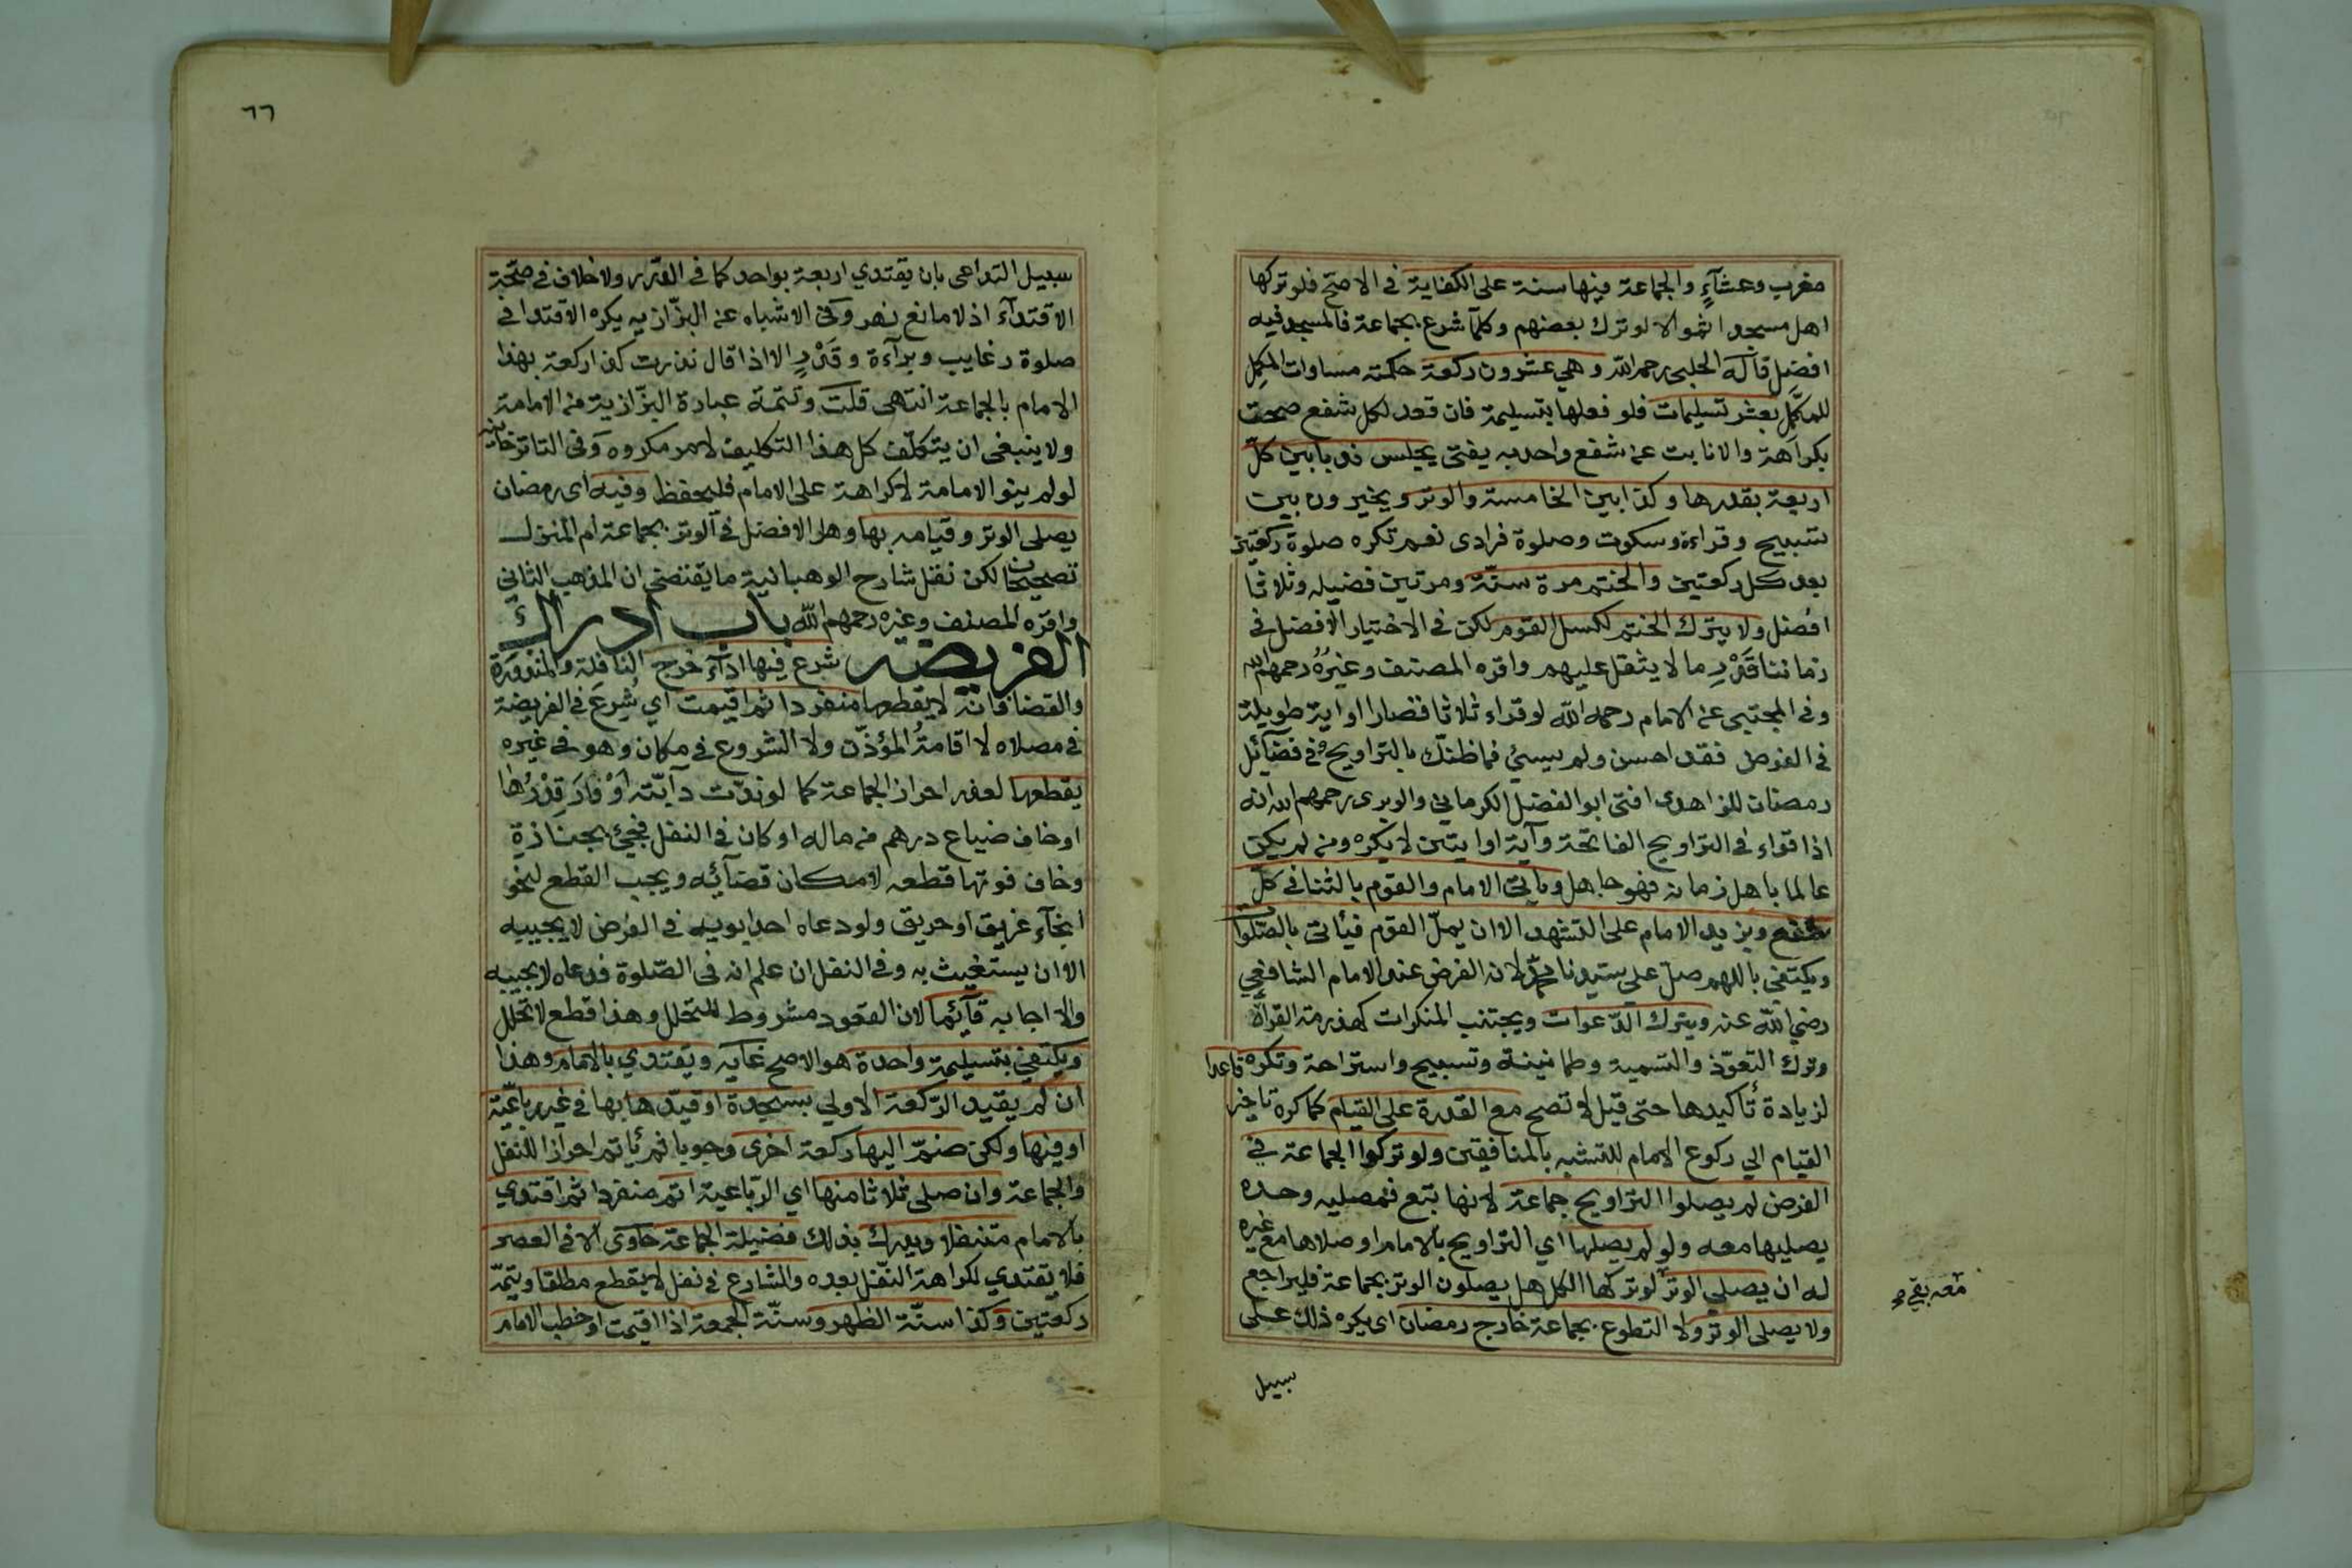 مغرب وعشآءٍ والجماعة فيها سنة على الكفاية في الاصح فلو تركها
اهل مسجد اثموا لا لو ترك بعضهم وكلما شرع بجماعة فالمسجد فيه
افضل قاله الحلبى رحمه الله وهي عشرون ركعة حكمته مساوات المكمِل
للمكمَّل بعشر تسليمات فلو فعلها بتسليمة فان قعد لكل شفع صحت
بكراهة والا نابت عن شفع واحد به يفتى يجلس ندبا بين كلّ
اربعة بقدرها وكذا بين الخامسة والوتر ويخيرون بين
تسبيح وقراءة وسكوت وصلوة فرادى نعم تكره صلوة ركعتين
بعد كل ركعتين والختم مرة سنّة ومرتين فضيله وثلاثا
افضل ولا يترك الختم لكسل القوم لكن في الاختيار الافضل في
زماننا قَدْرِ ما لا يثقل عليهم واقره المصنف وغيرُهُ رحمهم الله
وفي المجتبى عن الامام رحمه الله لو قراء ثلاثا قصارا او اية طويلة
في الفرض فقد احسن ولم يسئ فما ظنك بالتراويح وفي فضآئل
رمضان للزاهدى افتى ابو الفضل الكرماني والوبرى رحمهم الله انه
اذا قراء في التراويح الفاتحة وآية او ايتين لا يكره ومن لم يكن
عالما باهل زمانه فهو جاهل وياتى الامام والقوم بالثنا في كلّ
شفع ويزيد الامام على التشهد الا ان يملّ القوم فيأتى بالصلوات
ويكتفى باللهم صلّ على سيدنا محمّد لانه الفرض عند الامام الشافعي
رضي الله عنه ويترك الدّعوات ويجتنب المنكرات كهذرمة القرآة
وترك التعوّذ والتسمية وطمانينة وتسبيح واستراحة وتكره قاعدا
لزيادة تأكيدها حتى قيل لا تصح مع القدرة على القيام كما كره تاخير
القيام الي ركوع الامام للتشبه بالمنافقين ولو تركوا الجماعة في
الفرض لم يصلوا التراويح جماعة لانها تبع فمصليه وحده
يصليها معه ولو لم يصلها اي التراويح بالامام او صلاها مع غيره
له ان يصلي الوتر لو تركها الكل هل يصلون الوتر بجماعة فليراجع
ولا يصلى الوتر ولا التطوع بجماعة خارج رمضان اى يكره ذلك على
سبيل
٦٦
سبيل التداعى بان يقتدي اربعة بواحد كما في الدرر ولا خلاف في صحّة
الاقتدآء اذ لا مانع نهر وفى الاشباه عن البزّازيه يكره الاقتدا في
صلوة رغايب وبرآءة وقَدْرٍ الا اذا قال نذرت كذا ركعة بهذا
الامام بالجماعة انتهى قلت وتتمة عبارة البزّازية من الامامة
ولا ينبغى ان يتكلّف كل هذا التكليف لامر مكروه وفى التاترخانيه
لو لم ينو الامامة لا كراهة على الامام فليحفظ وفيه اى رمضان
يصلى الوتر وقيامه بها وهل الافضل في الوتر بجماعة ام المنزل
تصحيحان لكن نقل شارح الوهبانية ما يقتضى ان المذهب الثانى
واقره المصنف وغيره رحمهم الله باب ادراك
الفريضة شرع فيها اداءً خرج النافلة والمنذورة
والقضا فانه لا يقطعها منفردا ثم اقيمت اي شُرِعَ في الفريضة
في مصلاه لا اقامةُ المؤذّن ولا الشروع في مكان وهو في غيره
يقطعها لعذر احراز الجماعة كما لو ندّت دآبّته اَوْ فَارَ قِدْرُها
او خاف ضياع درهم من ماله او كان في النفل فجئ بجنازة
وخاف فوتها قطعه لامكان قضآئه ويجب القطع لنحو
انجآء غريق او حريق ولو دعاه احد ابويه في الفرض لا يجيبيه
الا ان يستغيث به وفي النفل ان علم انه في الصّلوة فدعاه لا يجيبه
والا اجابه قآئما لان القعود مشروط للتحلل وهذا قطع لا تحلل
ويكتفي بتسليمة واحدة هو الاصح غايه ويقتدي بالامام وهذا
ان لم يقيد الرّكعة الاولي بسجدة او قيّدها بها في غير رباعيّة
او فيها ولكن ضمّ اليها ركعة اخرى وجوبا ثم يأتم احرازا للنفل
والجماعة وان صلى ثلاثا منها اي الرّباعية اتم منفردا ثم اقتدي
بالامام متنفلا ويدرك بذلك فضيلة الجماعة حاوى الا في العصر
فلا يقتدي لكراهة النّفل بعده والشارع في نفل لا يقطع مطلقا ويتمّ
ركعتين وكذا سنّة الظهر وسنّة الجمعة اذا اقيمت او خطب الامام